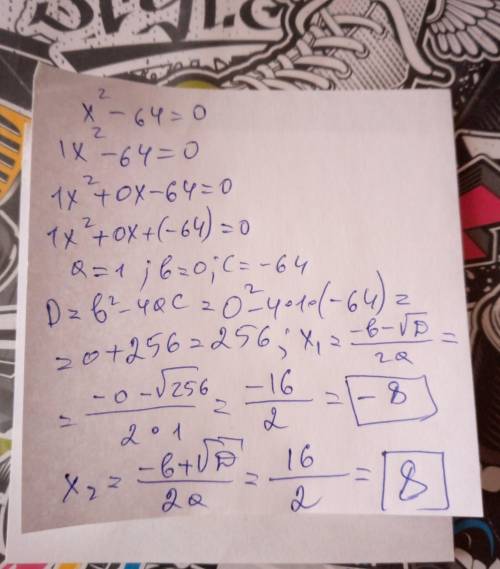 x² - 64 = 0
1x² - 64 = 0
1x² + 0x - 64 = 0
1x² + 0x + (-64) = 0
a = 1 ; b = 0 ; c = -64
D = b² - 4ac = 0² - 4·1·(-64) =
= 0 + 256 = 256 ; x₁ = (-b - √D)/2a =
= (-0 - √256)/(2·1) = -16/2 = -8
x₂ = (-b + √D)/2a = 16/2 = 8